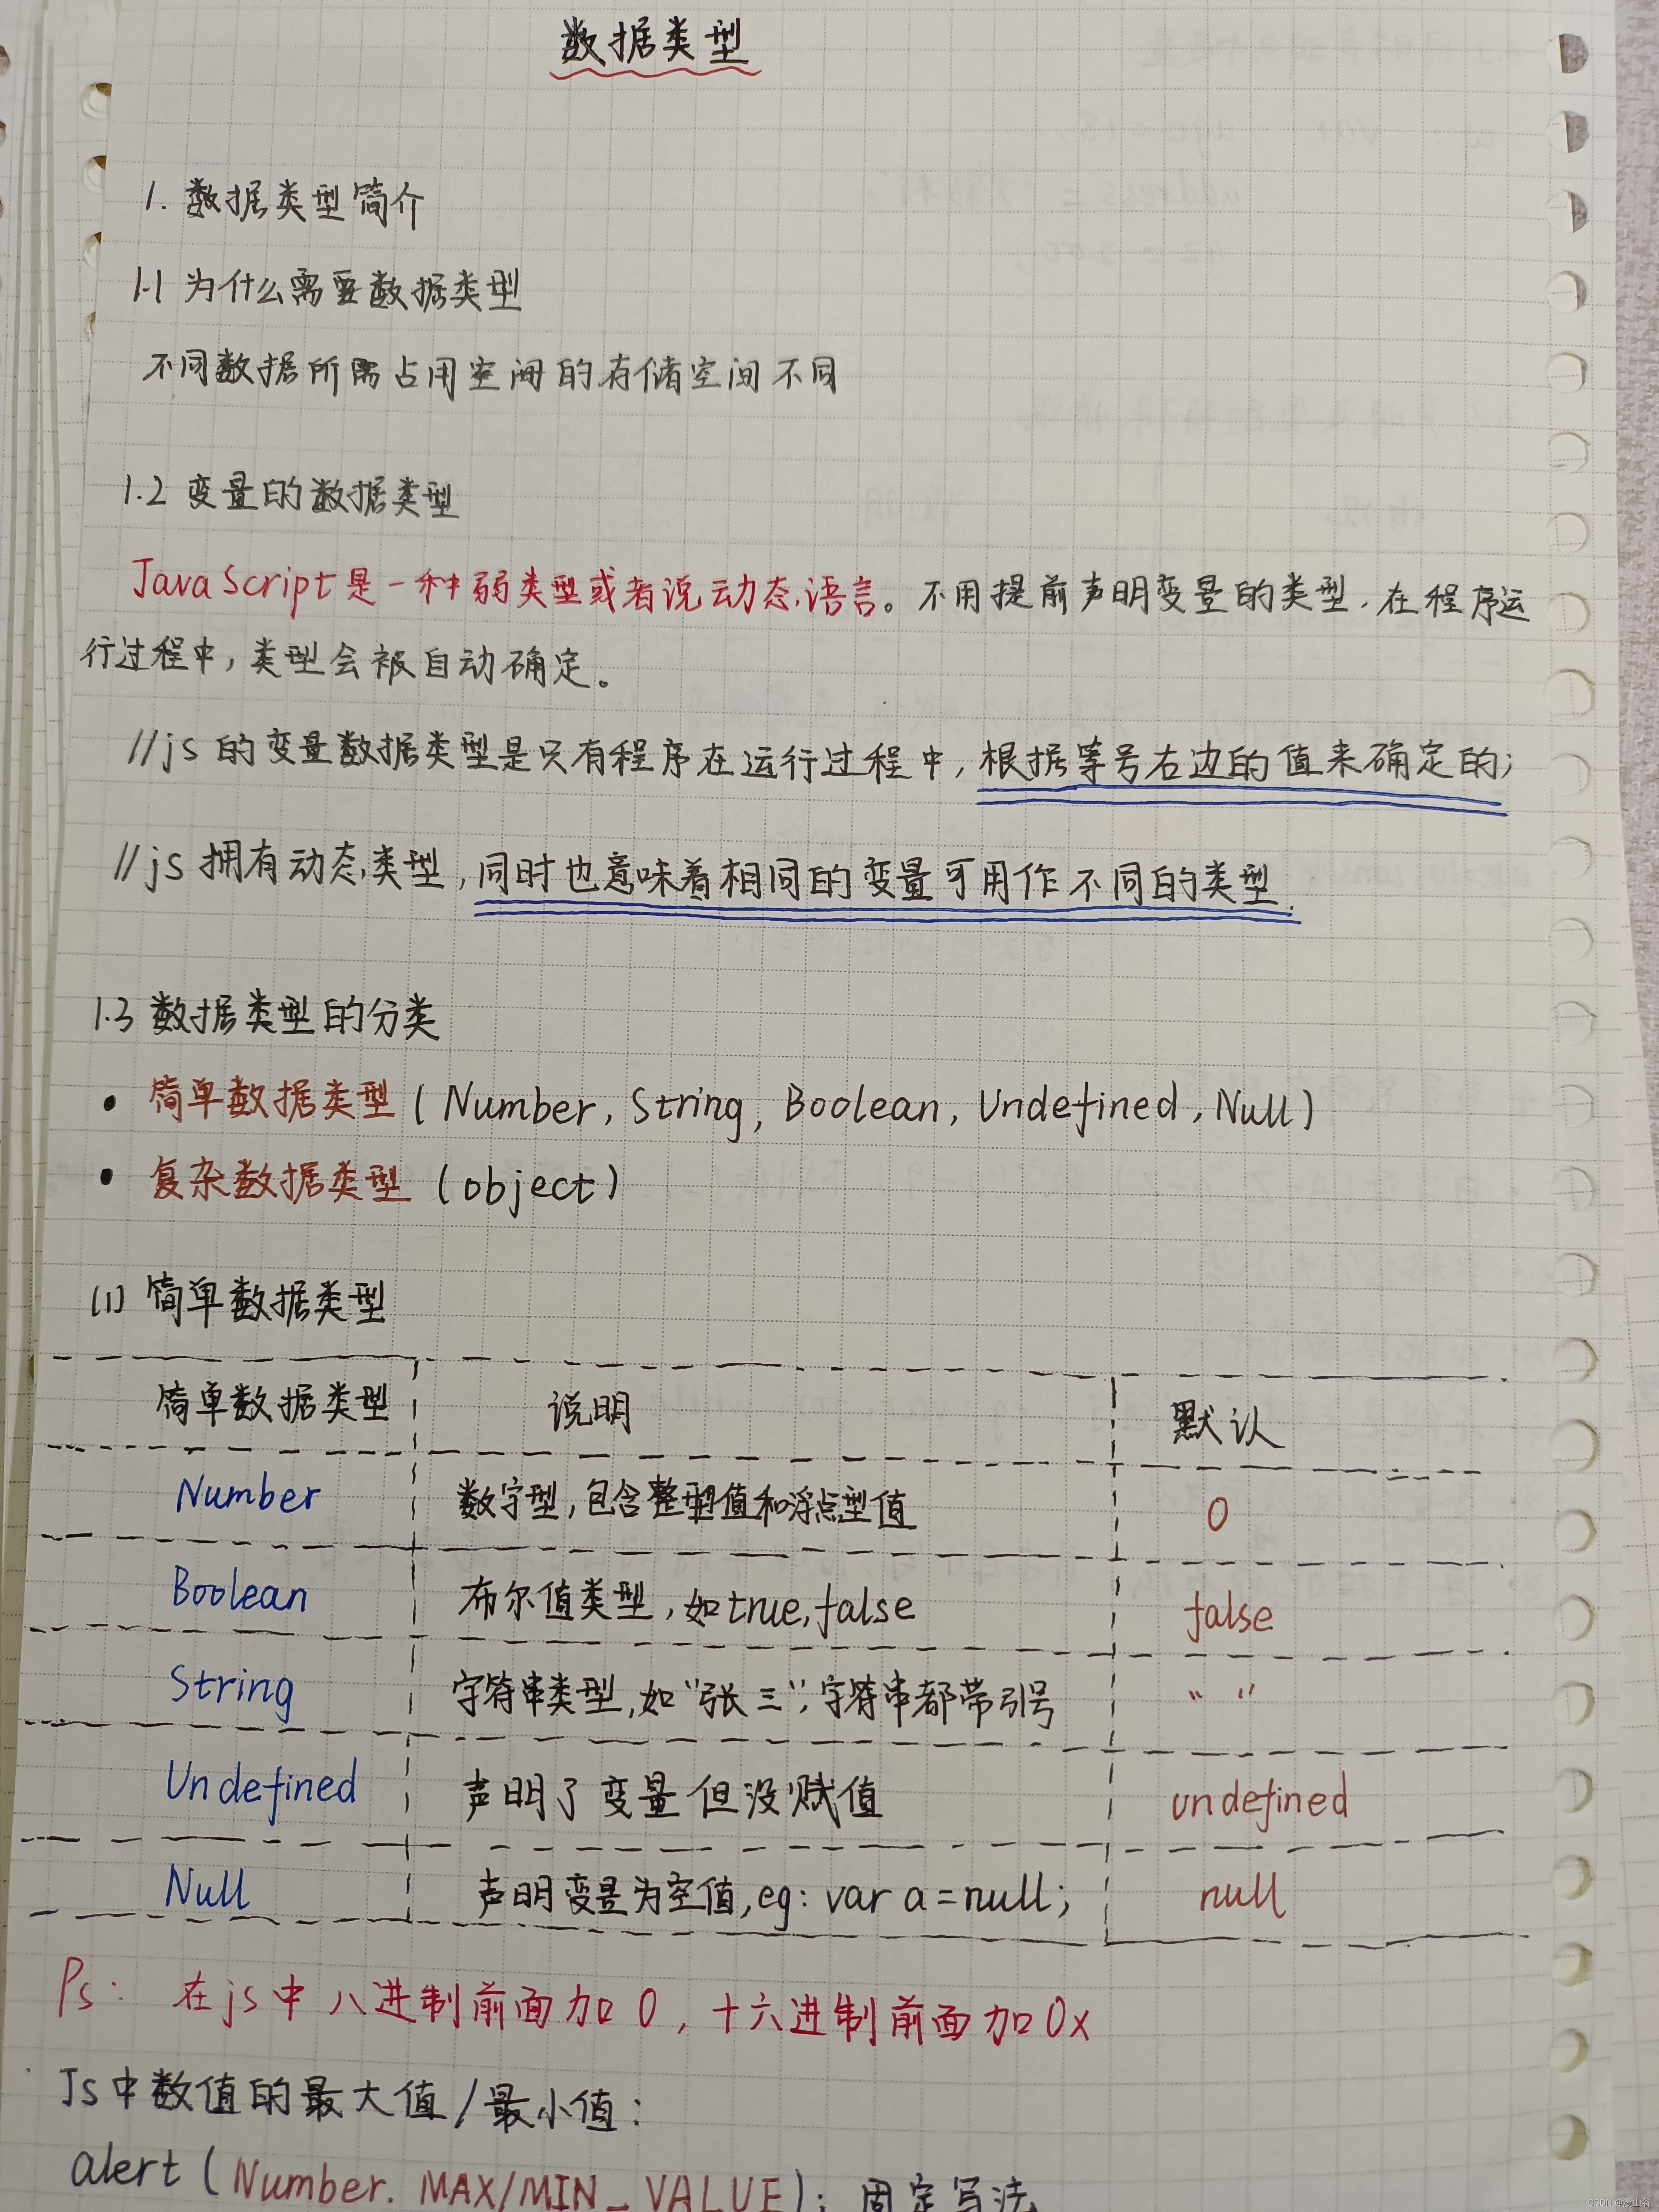 数据类型
1. 数据类型简介
1.1 为什么需要数据类型
不同数据所需占用空间的存储空间不同
1.2 变量的数据类型
JavaScript是一种弱类型或者说动态语言。不用提前声明变量的类型,在程序运
行过程中,类型会被自动确定。
//js的变量数据类型是只有程序在运行过程中,根据等号右边的值来确定的;
//js拥有动态类型,同时也意味着相同的变量可用作不同的类型.
1.3 数据类型的分类
• 简单数据类型(Number, String, Boolean, Undefined, Null)
• 复杂数据类型 (object)
(1) 简单数据类型
简单数据类型 说明 默认
Number 数字型,包含整型值和浮点型值 0
Boolean 布尔值类型,如true,false false
String 字符串类型,如"张三",字符串都带引号 " "
Undefined 声明了变量但没赋值 undefined
Null 声明变量为空值,eg: var a=null; null
Ps: 在js中八进制前面加0,十六进制前面加0x
Js中数值的最大值/最小值:
alert(Number. MAX/MIN_VALUE); 固定写法